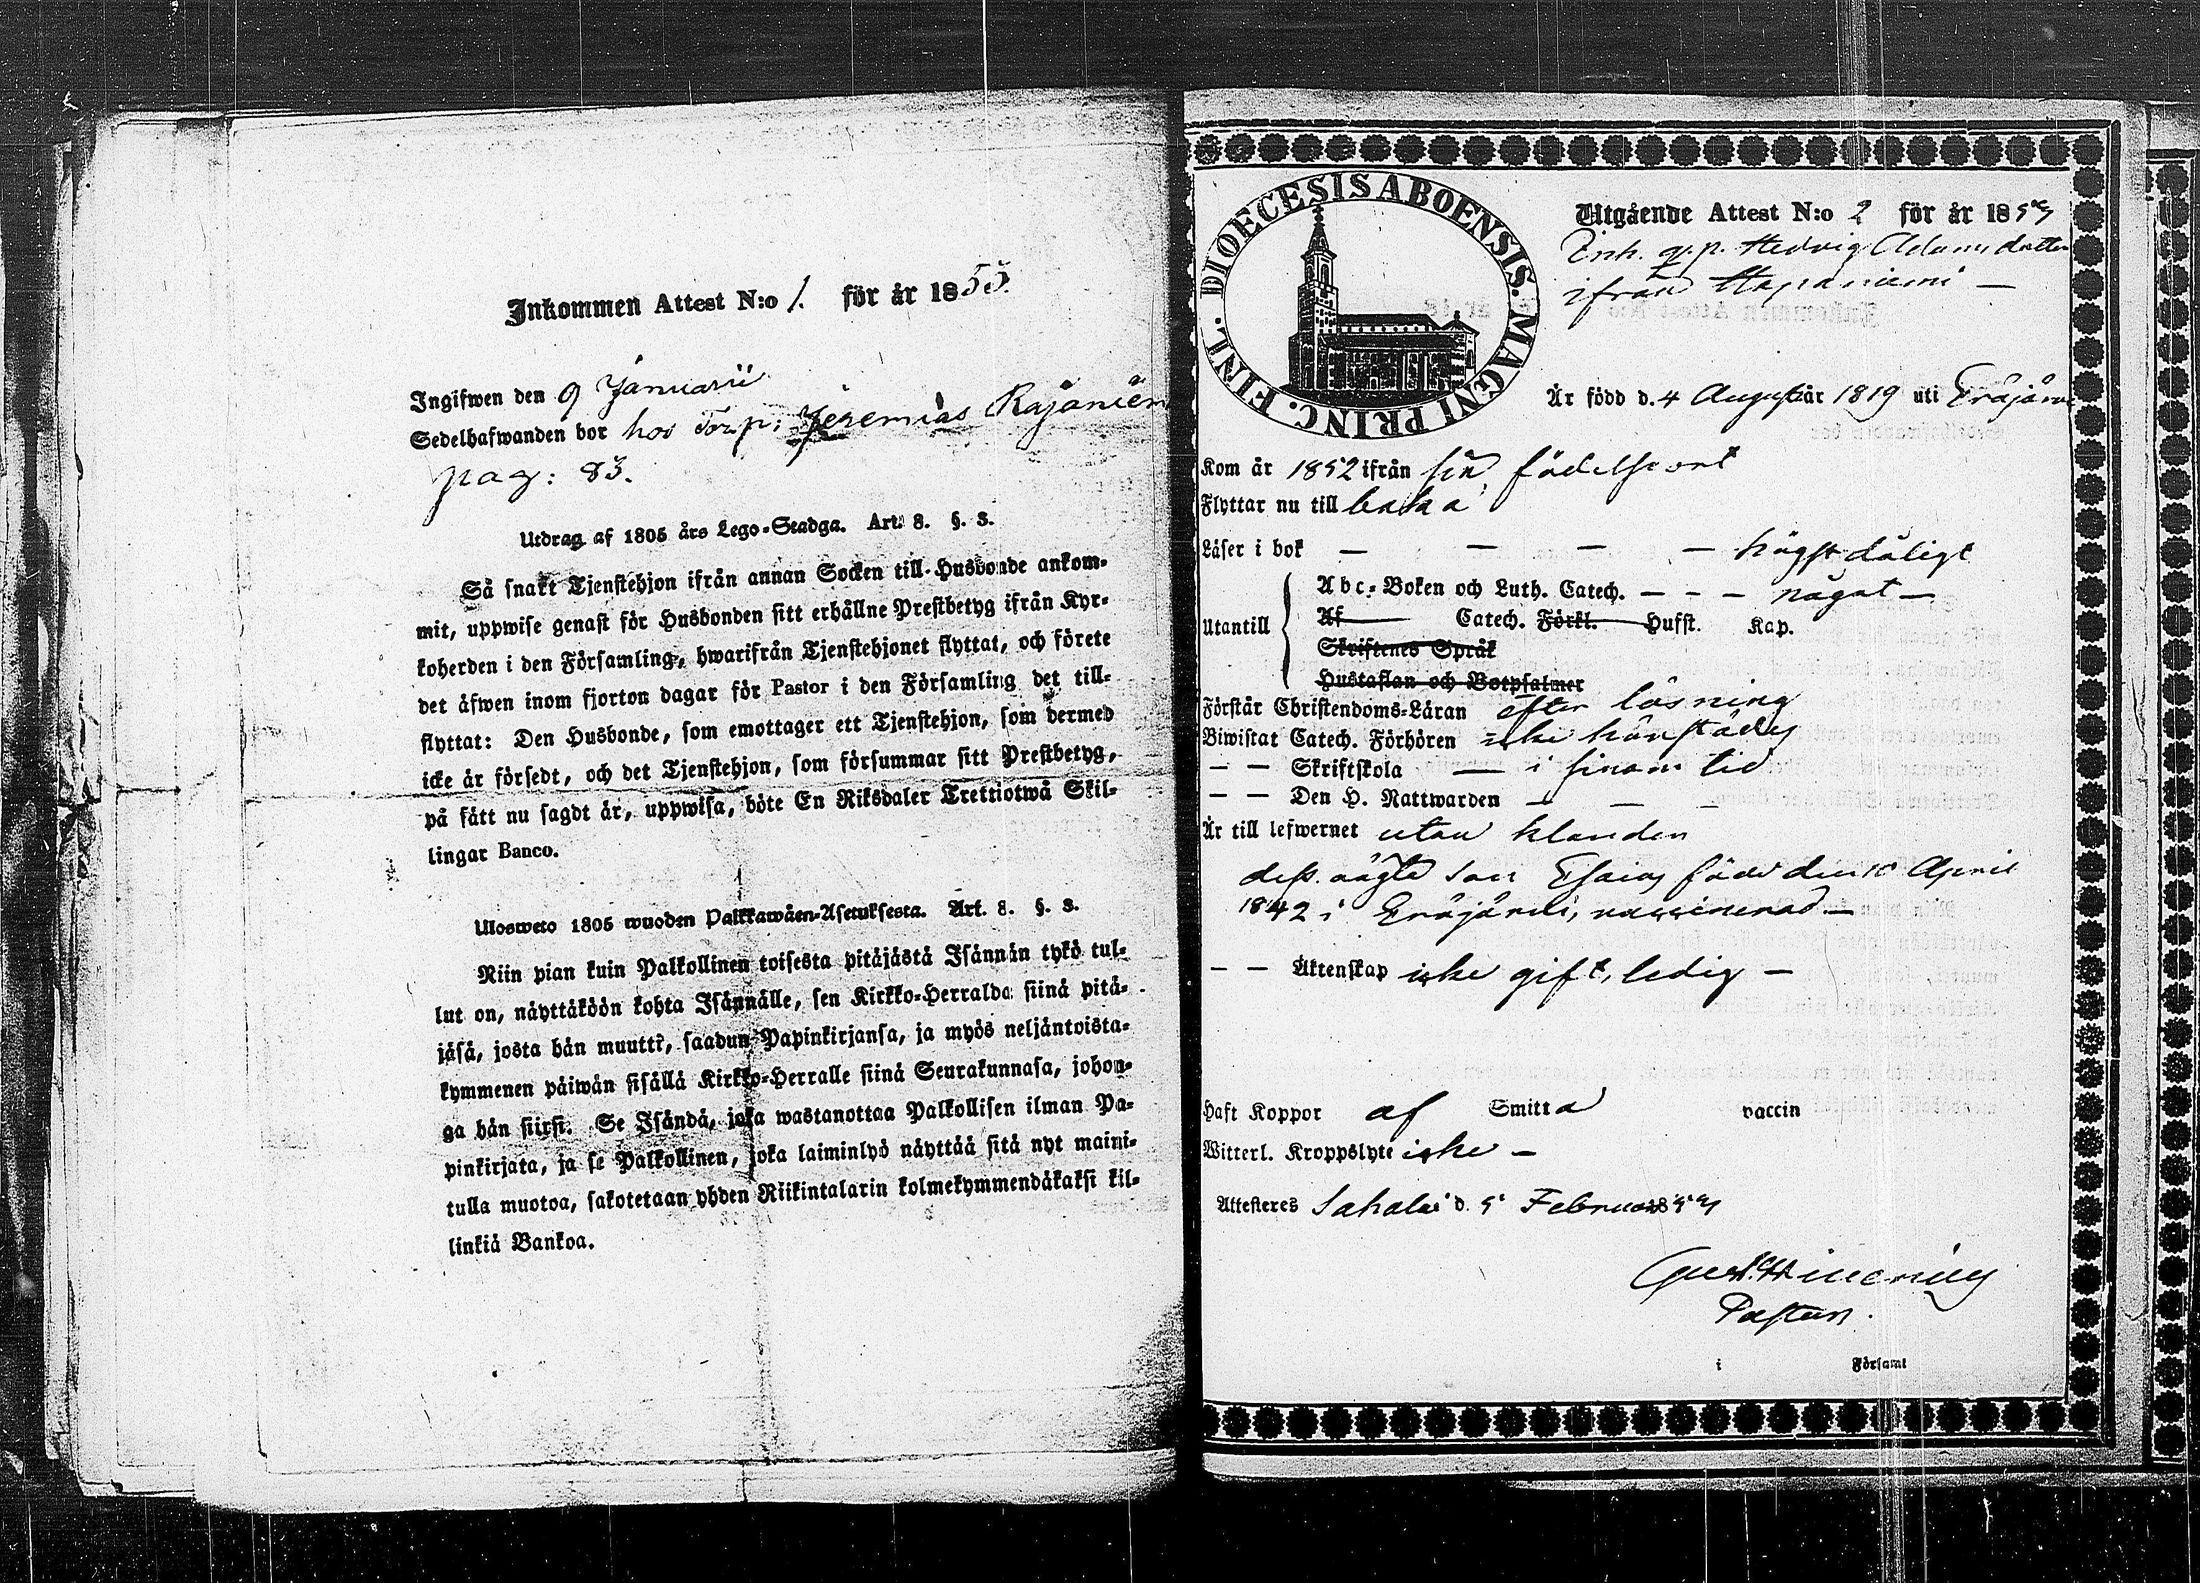 Inkommen Attest N:o 1. för år 1855.
Ingifwen den 9 Januarii
Sedelhafwanden bor hos Torp: Jeremias Rajanien
pag: 83.
Utdrag af 1805 års Lego-Stadga. Art. 8. §. 3.
Så snart Tjenstehjon ifrån annan Socken till Husbonde ankom-
mit, uppwise genast för Husbonden sitt erhållne Prestbetyg ifrån Kyr-
koherden i den Församling, hwarifrån Tjenstehjonet flyttat, och förete
det äfwen inom fjorton dagar för Pastor i den Församling det till-
flyttat: Den Husbonde, som emottager ett Tjenstehjon, som dermed
icke är försedt, och det Tjenstehjon, som försummar sitt Prestbetyg,
på sätt nu sagdt är, uppwisa, böte En Riksdaler Trettiotwå Skil-
lingar Banco.
Ulosweto 1805 wuoden Palkkawäen-Asetuksesta. Art. 8. §. 3.
Niin pian kuin Palkollinen toisesta pitäjästä Isännän tykö tul-
lut on, näyttäköön kohta Isännälle, sen Kirkko-Herralda siinä pitä-
jäsä, josta hän muutti, saadun Papinkirjansa, ja myös neljäntoista-
kymmenen päiwän sisällä Kirkko-Herralle siinä Seurakunnasa, johon-
ga hän siirsi. Se Isändä, joka wastanottaa Palkollisen ilman Pa-
pinkirjata, ja se Palkollinen, joka laiminlyö näyttää sitä nyt maini-
tulla muotoa, sakotetaan yhden Riikintalarin kolmekymmendäkaksi kil-
linkiä Bankoa.
DIOECESIS ABOENSIS. MAGNI PRINC. FINL.
Utgående Attest N:o 2 för år 1855
Enh. q. p. Hedvig Adamsdotter
ifrån Hapaniemi —
Är född d. 4 Augusti år 1819 uti Eräjärvi
Kom år 1852 ifrån sin födelseort
Flyttar nu till baka
Läser i bok — — — — högst dåligt
Utantill
Abc-Boken och Luth. Catech. — — — något —
Af Catech. Förkl. Hufst. Kap.
Skriftenes Språk
Hustaflan och Botpsalmer
Förstår Christendoms-Läran efter läsning
Biwistat Catech. Förhören icke härstädes
— — Skriftskola — i sinom tid
— — Den H. Nattwarden — — —
Är till lefwernet utan klander
dess oägta son Esaias född den 10 April
1842 i Eräjärvi, vaccinerad —
— — Äktenskap icke gift, ledig —
Haft Koppor af Smitta vaccin
Witterl. Kroppslyte icke —
Attesteres Sahalax d. 5 Februar 1855
Pastor.
i Församl